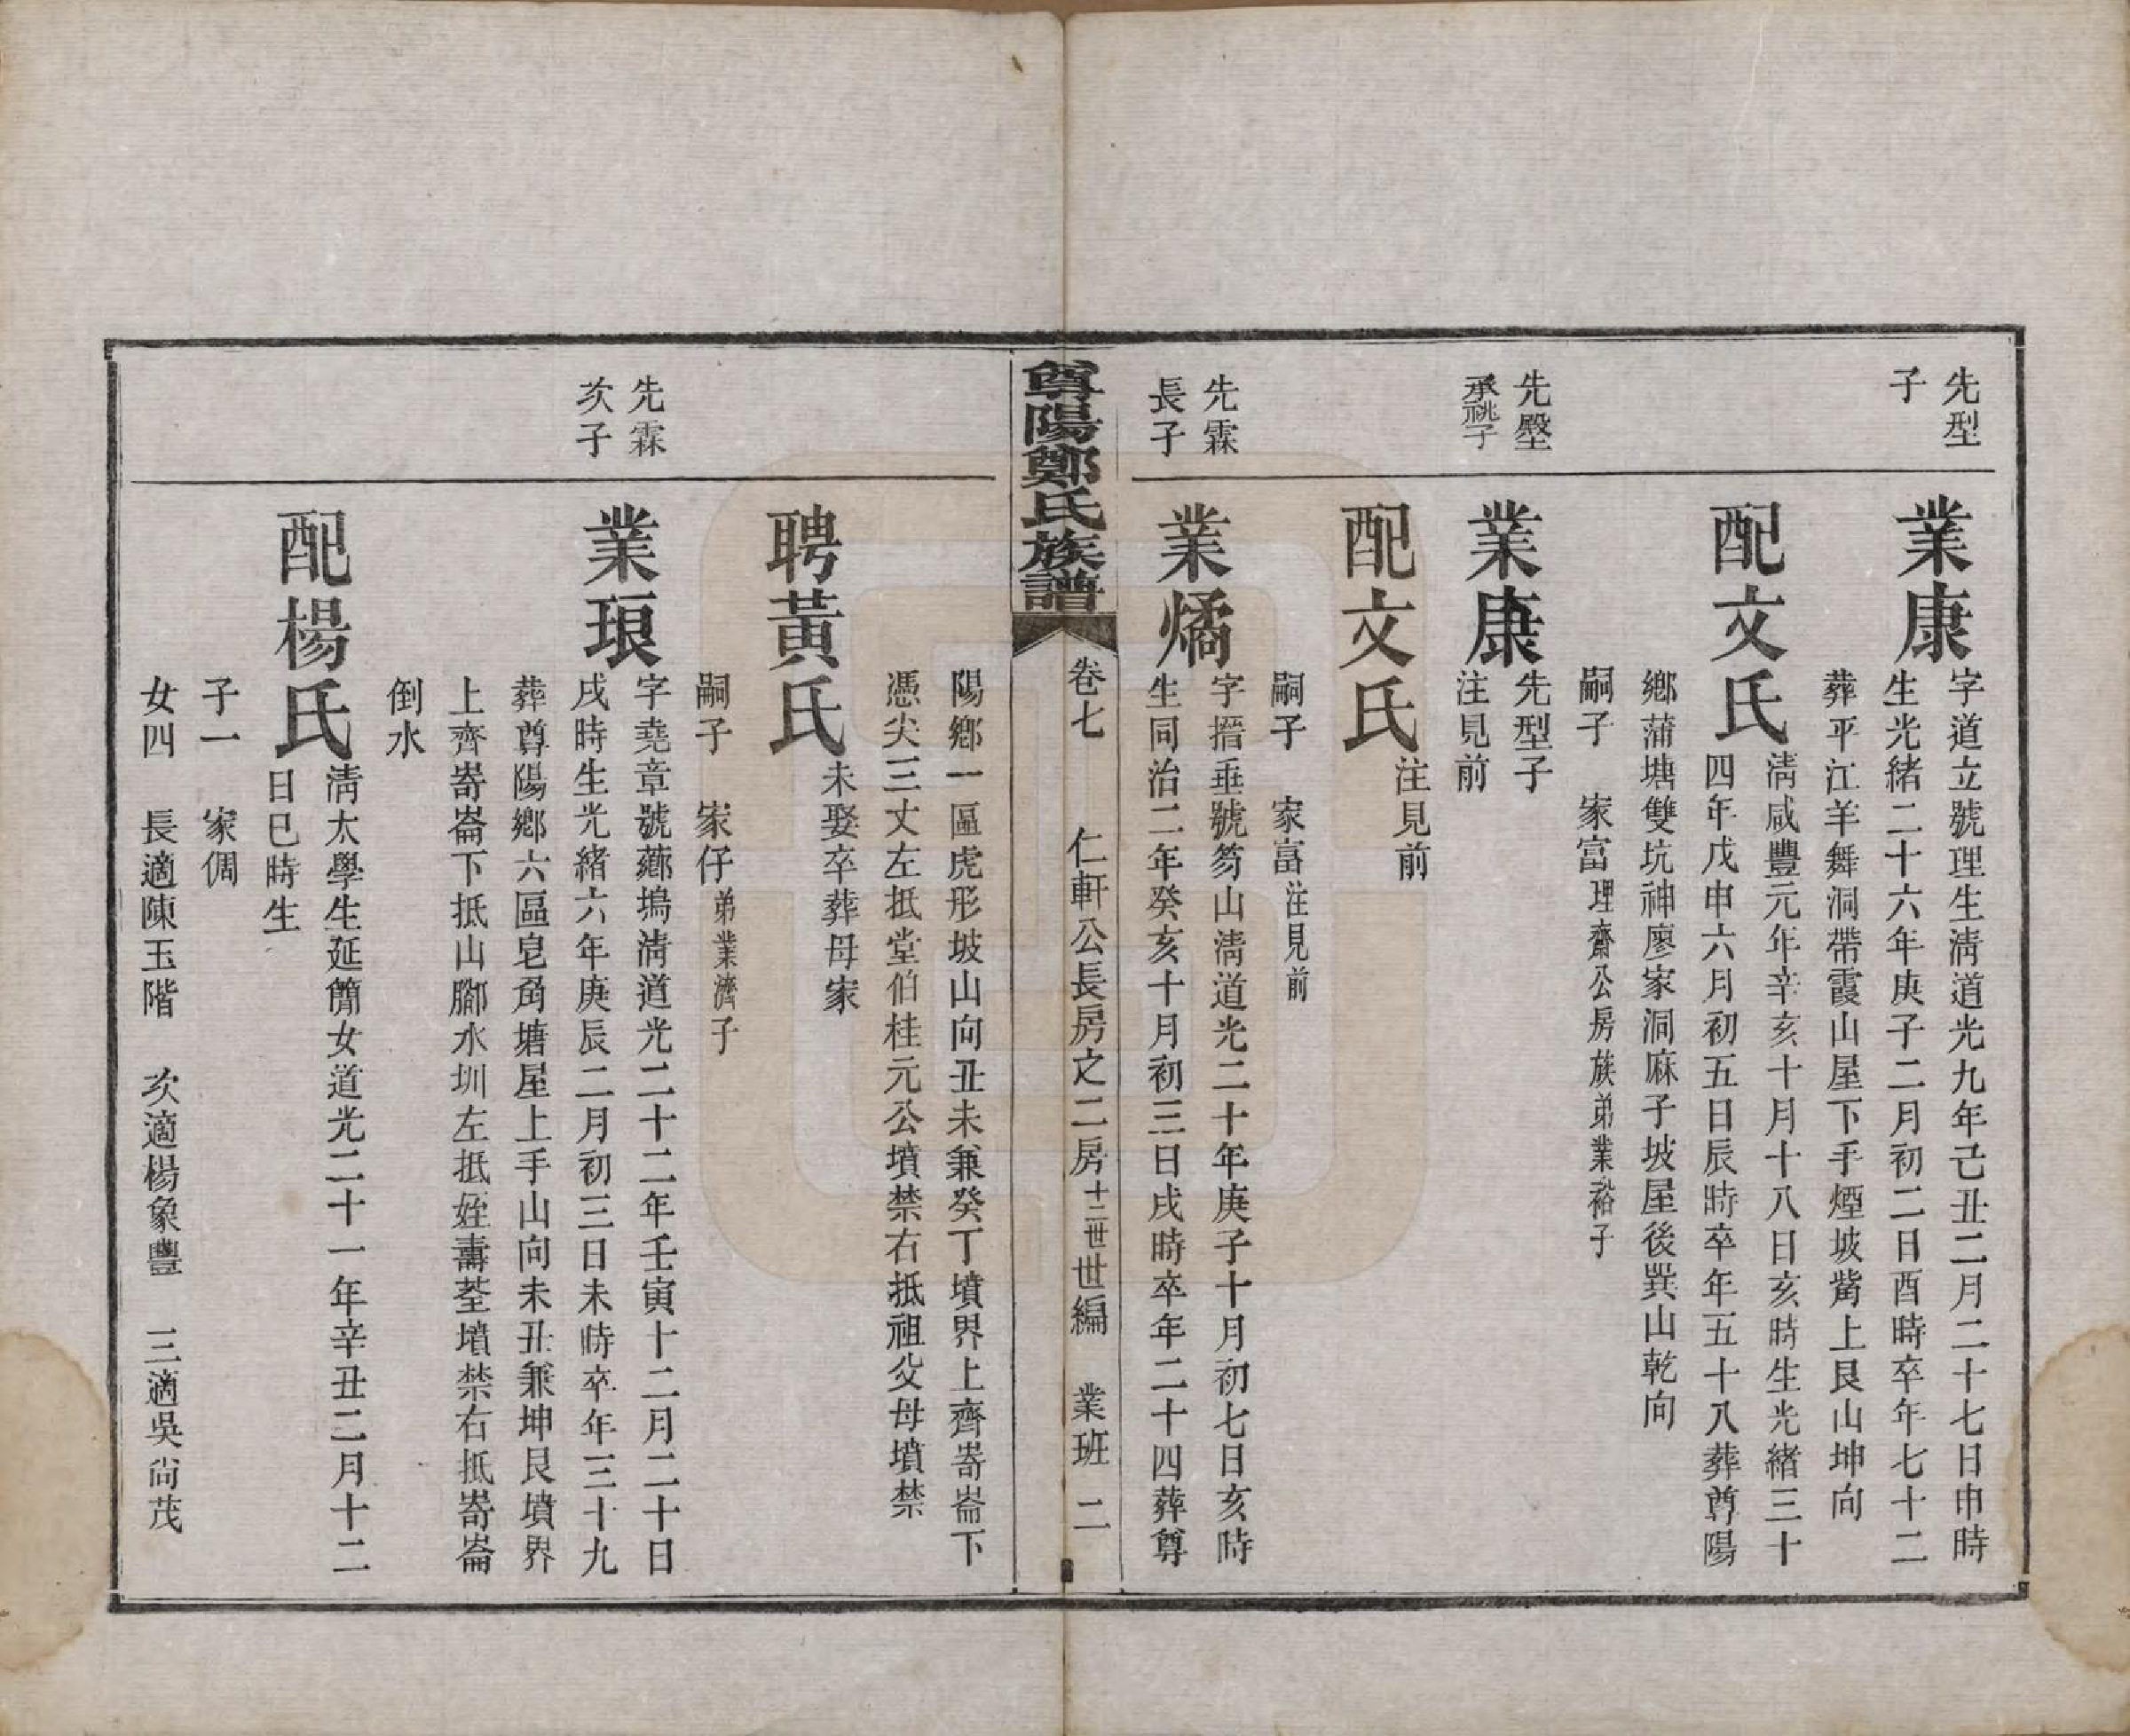 先型
子
業康
字道立號理生清道光九年己丑二月二十七日申時
生光緒二十六年庚子二月初二日酉時卒年七十二
葬平江羊舞洞帶霞山屋下手煙坡觜上艮山坤向
配文氏
清咸豐元年辛亥十月十八日亥時生光緒三十
四年戊申六月初五日辰時卒年五十八葬尊陽
鄉蒲塘雙坑神廖家洞麻子坡屋後巽山乾向
嗣子　家富理齋公房族弟業裕子
先壂
承祧子
業康
先型子
注見前
配文氏
注見前
嗣子　家富注見前
先霖
長子
業燏
字搢垂號笏山清道光二十年庚子十月初七日亥時
生同治二年癸亥十月初三日戌時卒年二十四葬尊
尊陽鄭氏族譜
卷七　仁軒公長房之二房十二世世編　業班　二
陽鄉一區虎形坡山向丑未兼癸丁墳界上齊嵜崙下
憑尖三丈左抵堂伯桂元公墳禁右抵祖父母墳禁
聘黃氏
未娶卒葬母家
嗣子　家仔弟業濟子
先霖
次子
業琅
字堯章號薌塢清道光二十二年壬寅十二月二十日
戌時生光緒六年庚辰二月初三日未時卒年三十九
葬尊陽鄉六區皂角塘屋上手山向未丑兼坤艮墳界
上齊嵜崙下抵山腳水圳左抵姪壽荃墳禁右抵嵜崙
倒水
配楊氏
清太學生延簡女道光二十一年辛丑二月十二
日巳時生
子一　家倜
女四　長適陳玉階　次適楊象豐　三適吳尚茂